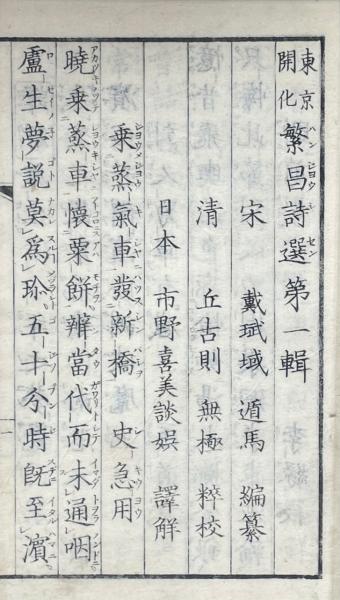 東京開化繁昌詩選第一輯
宋 戴珷域 遁馬 編纂
清 丘古則 無極 粹校
日本 市野喜美談娯 譯解
乗蒸氣車發新橋 史急用
曉乗蒸車懷粟餅辨當代而未通咽
盧生夢説莫爲珎五十今時既至濵